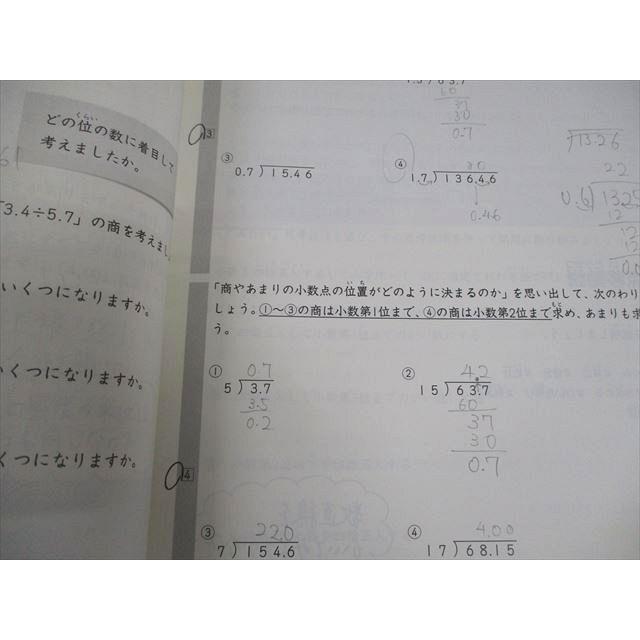 どの位の数に着目して
考えましたか。
「3.4÷5.7」の商を考えまし
いくつになりますか。
くつになりますか。
くつになりますか。
3
1.5)63.7
60
37
30
0.7
③
0.7)15.46
④
80
1.7)136.46
0.46
13.26
22
0.6)132
12
「商やあまりの小数点の位置がどのように決まるのか」を思い出して、次のわり
しょう。①～③の商は小数第1位まで、④の商は小数第2位まで求め、あまりも求
う。
4
①
0.7
5)3.7
3.5
0.2
②
4.2
15)63.7
60
37
30
0.7
③
22.0
7)154.6
④
4.00
17)68.15